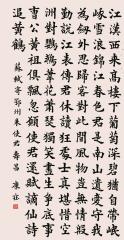 江漢西來高樓下葡萄深碧猶自帶岷
峨雪浪錦江春色君是南山遺愛守我
為劍外思歸客對此間風物豈無情殷
勤說江表傳君休讀狂處士真堪惜空
洲對鸚鵡葦花蕭瑟獨笑書生爭底事
曹公黃祖俱飄忽願使君還賦謫仙詩
追黃鶴 蘇軾寄鄂州朱使君壽昌